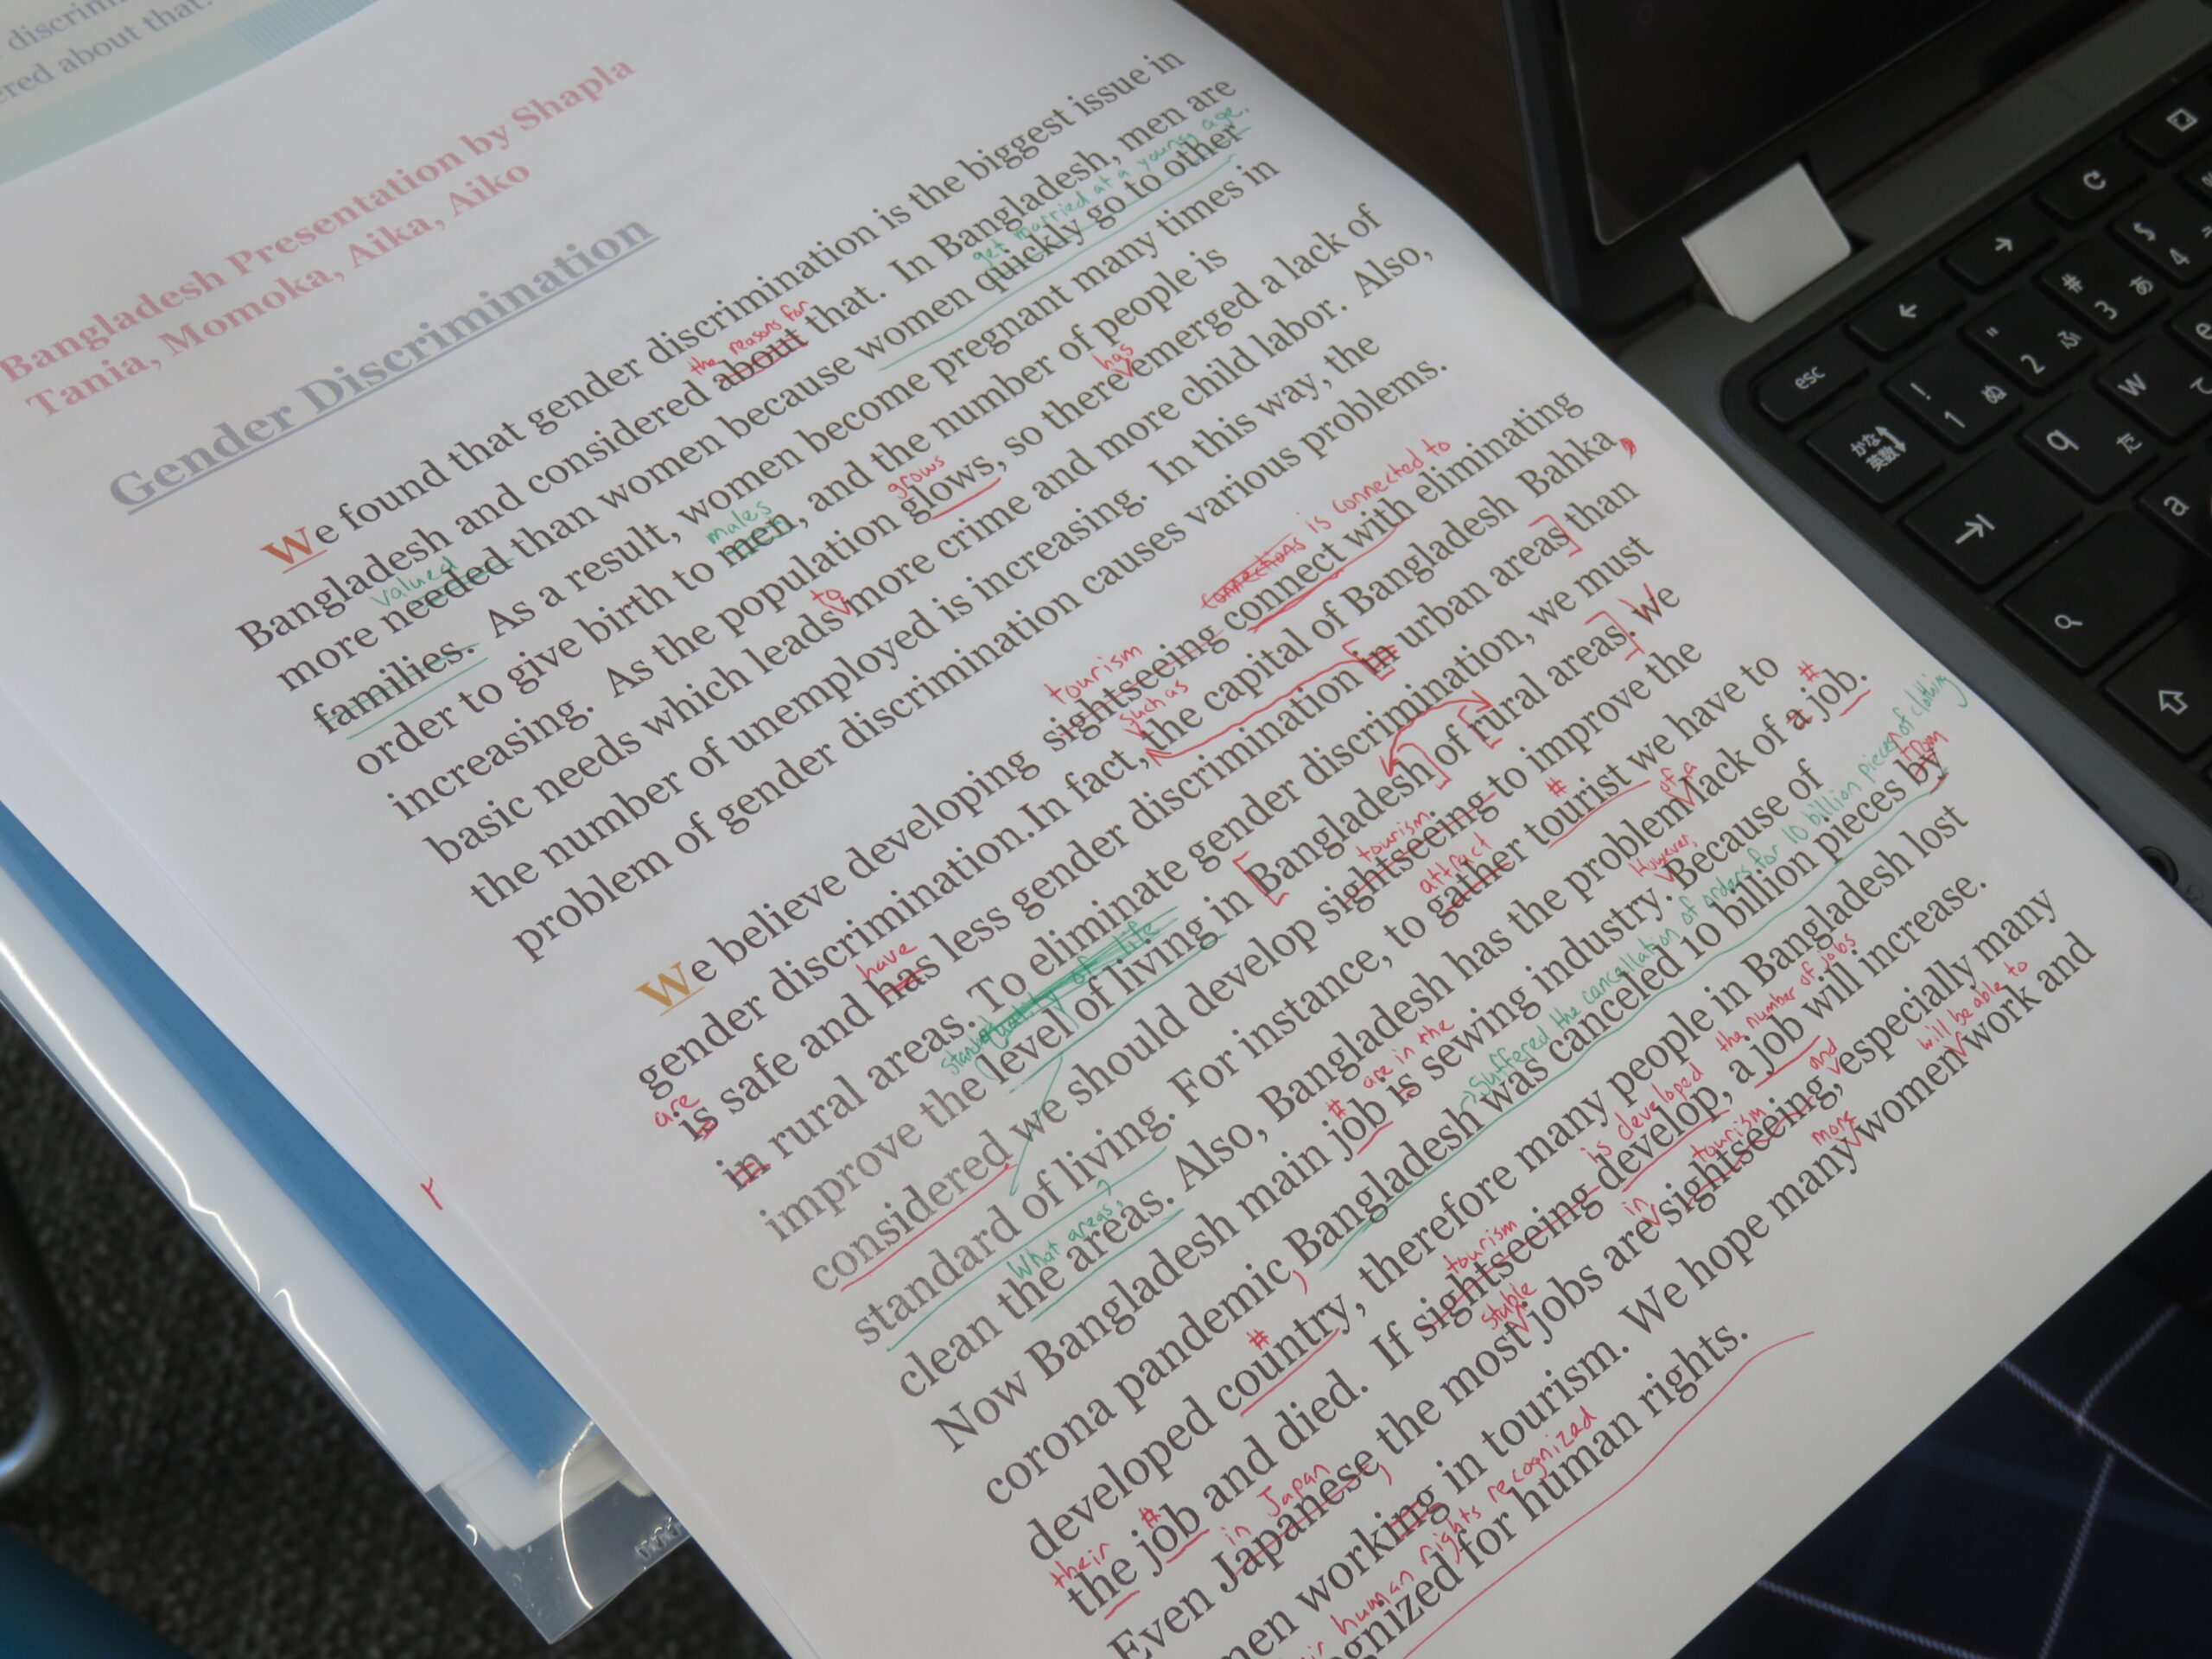 discrim
ered about that.
Bangladesh Presentation by Shapla
Tania, Momoka, Aika, Aiko
Gender Discrimination
We found that gender discrimination is the biggest issue in
the reasons for
Bangladesh and considered about that. In Bangladesh, men are
valued
get married at a young age.
more needed than women because women quickly go to other
families. As a result, women become pregnant many times in
males
order to give birth to men, and the number of people is
grows
has
increasing. As the population glows, so there emerged a lack of
to
basic needs which leads more crime and more child labor. Also,
the number of unemployed is increasing. In this way, the
problem of gender discrimination causes various problems.
tourism
connections is connected to
We believe developing sightseeing connect with eliminating
such as
gender discrimination.In fact, the capital of Bangladesh Bahka,
are
have
is safe and has less gender discrimination in urban areas] than
in rural areas. To eliminate gender discrimination, we must
quality of life
improve the level of living in [Bangladesh] of [rural areas]. We
tourism
considered we should develop sightseeing to improve the
attract
#
standard of living. For instance, to gather tourist we have to
what areas?
of a
#
clean the areas. Also, Bangladesh has the problem lack of a job.
# are in the
However,
Now Bangladesh main job is sewing industry. Because of
suffered the cancellation of orders for 10 billion pieces of clothing
from
corona pandemic, Bangladesh was canceled 10 billion pieces by
#
developed country, therefore many people in Bangladesh lost
their
#
tourism
is developed
the number of jobs
the job and died. If sightseeing develop, a job will increase.
in Japan
stable
in
tourism
and
Even Japanese, the most jobs are sightseeing, especially many
more
will be able to
men working in tourism. We hope many women work and
human rights recognized
ognized for human rights.
esc
!
1
ぬ
"
2
ふ
#
3
あ
$
4
かな
英数
q
た
W
て
e
a